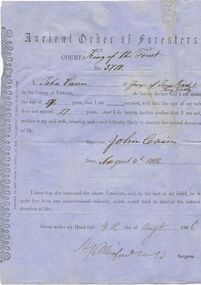 Ancient Order of Foresters
COURT King of the Forest
No. 3770.
I, John Cain
in the Colony of Victoria, do hereby declare that I am under
the age of years, that I am married, and that the age of my wife
does not exceed 37 years. And I do further declare that I am not,
neither is my said wife, labouring under any illness likely to shorten the natural duration
of life.
Signature, John Cain
Date, August 4th 1866
I have this day examined the above Candidate, and, to the best of my belief, he is
quite free from any constitutional infirmity which would tend to shorten the natural
duration of life.
Given under my Hand this 4th day of Augt 1866
Surgeon.